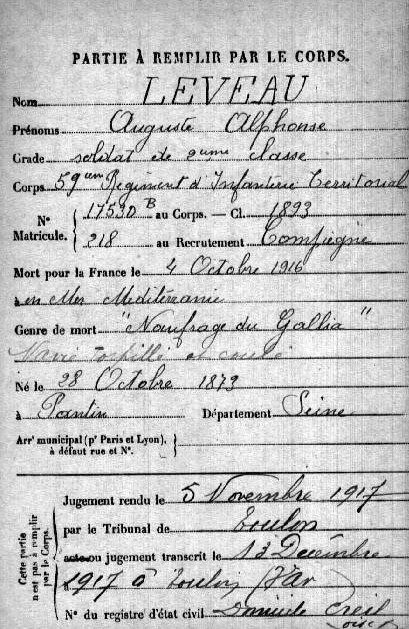 PARTIE À REMPLIR PAR LE CORPS.
Nom LEVEAU
Prénoms Auguste Alphonse
Grade soldat de 2eme classe
Corps 59em Régiment d'Infanterie Territorial
N° Matricule. { 17530 B au Corps. — Cl. 1893
218 au Recrutement Compiègne
Mort pour la France le 4 Octobre 1916
à en Mer Mediterranie
Genre de mort "Naufrage du Gallia"
Navire torpillé et coulé
Né le 28 Octobre 1873
à Pantin Département Seine
Arrt municipal (pr Paris et Lyon), à défaut rue et N°. }
Cette partie n'est pas à remplir par le Corps.
Jugement rendu le 5 Novembre 1917
par le Tribunal de Toulon
acte ou jugement transcrit le 13 Décembre
1917 à Toulon Var
N° du registre d'état civil Domicile Creil
Oise